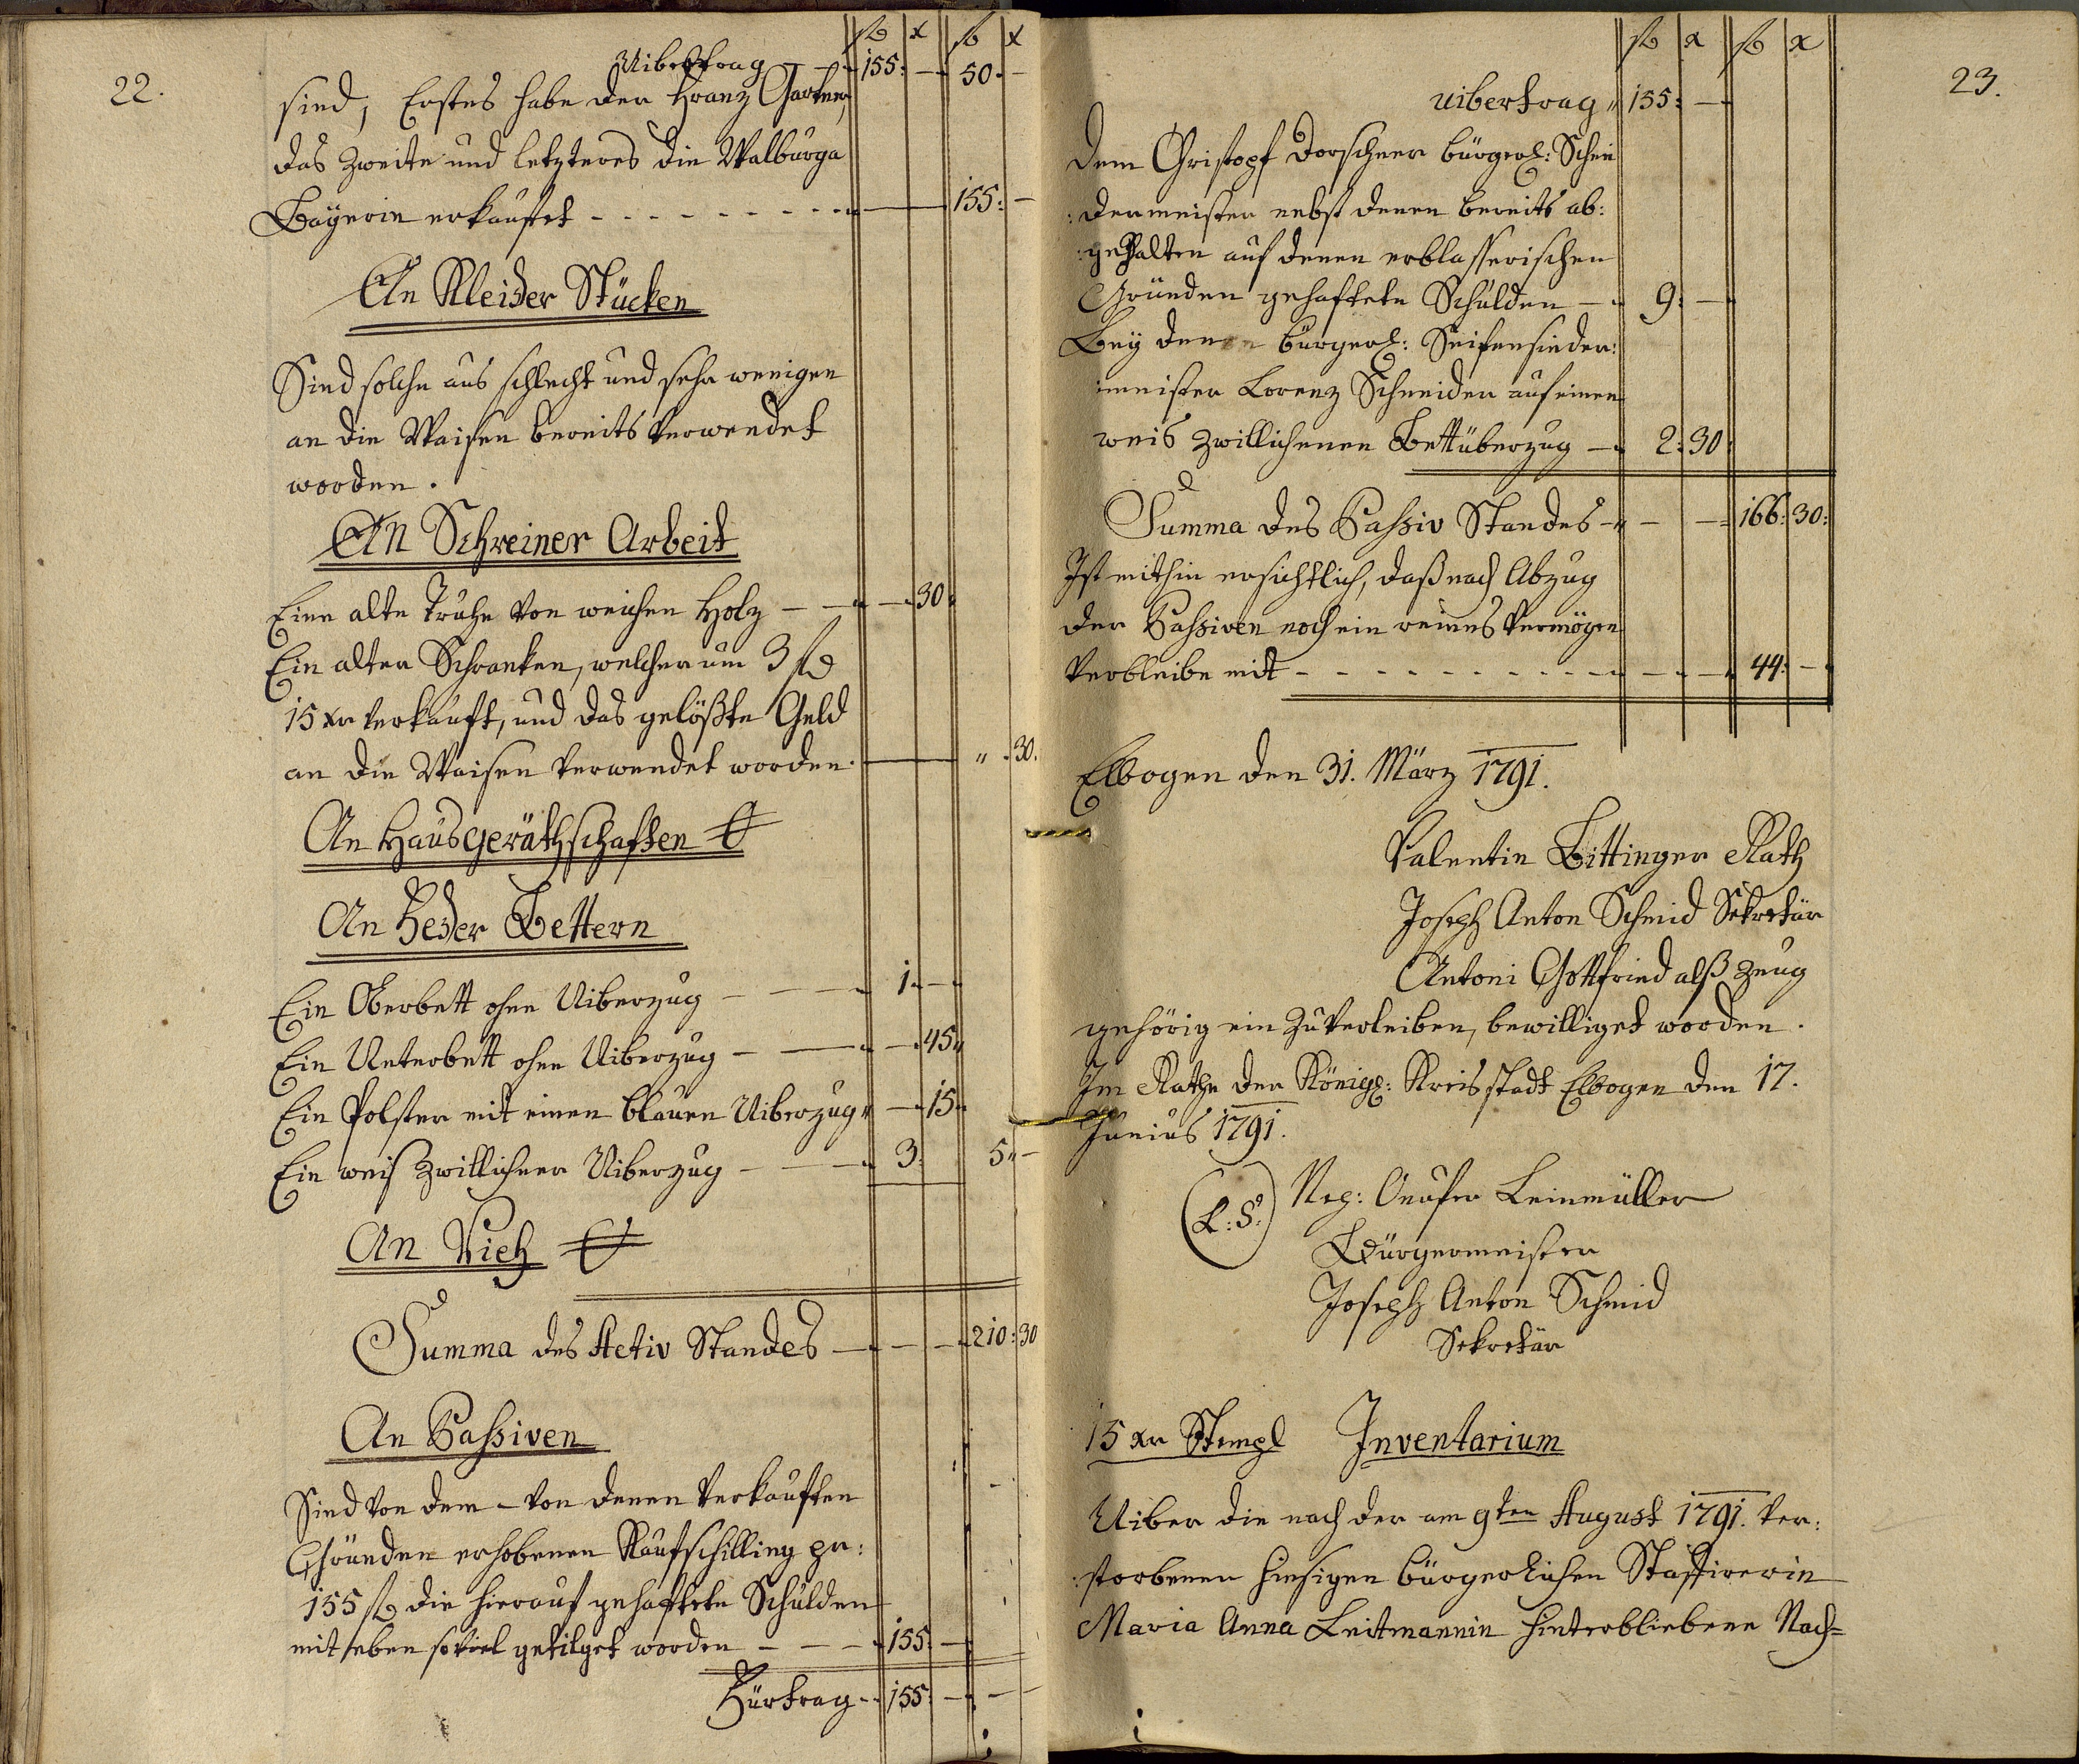 22.
fl x fl x
Uibertrag 155: — 50. —
sind, Erstes habe der Franz Gartner,
das Zweite und letzteres die Walburga
Baÿerin erkaufet - - - - - - - - - 155: —
An Kleider Stücken
Sind solche aus schlecht und sehr wenigen
an die Waisen bereits verwendet
worden.
An Schreiner Arbeit
Eine alte Truhe von weichen Holz — — 30
Ein alter Schranken, welcher um 3 fl
15 xr verkauft, und das gelößte Geld
an die Waisen verwendet worden. — „ 30.
An Hausgeräthschaften
An Feder Bettern
Ein Oberbett ohne Uiberzug — — 1 —
Ein Unterbett ohne Uiberzug — — 45
Ein Polster mit einen blauen Uiberzug — 15
Ein weis zwillichner Uiberzug — — 3: 5 „ —
An Vieh
Summa des Activ Standes — — — 210: 30
An Passiven
Sind von dem - von denen verkauften
Gründen erhobenen Kaufschilling pr:
155 fl die hierauf gehaftete Schulden
mit eben soviel getilget worden — — — 155 —
Fürtrag - - 155: — — —
23.
fl x fl x
uibertrag „ 155: —
Dem Christoph Dorschner bürgerl: Schnei
:dermeister nebst denen bereits ab:
:gehalten auf denen erblasserischen
Gründen gehaftete Schulden — 9: —
Beÿ denen bürgerl: Seifensieder:
:meister Lorenz Schneider auf einen
weis zwillichenen Bettüberzug — 2: 30
Summa des Passiv Standes — — — 166: 30:
Ist mithin ersichtlich, daß nach Abzug
der Passiven noch ein reines Vermögen
verbleibe mit - - - - - - - - - 44: —
Elbogen den 31. März 1791.
Valentin Bittinger Rath
Joseph Anton Schmid Sekretär
Antoni Gottfried alß Zeug
gehörig ein zuverleiben, bewilliget worden.
Im Rathe der Königl: Kreisstadt Elbogen den 17.
Junius 1791.
(L:S:) Neg: Onufer Leinmüller
Bürgermeister
Joseph Anton Schmid
Sekretär
15 xr Stempl Inventarium
Uiber die nach der am 9ten August 1791. ver:
:storbenen hiesigen bürgerlichen Staffirerin
Maria Anna Leitmannin hinterbliebene Nach=